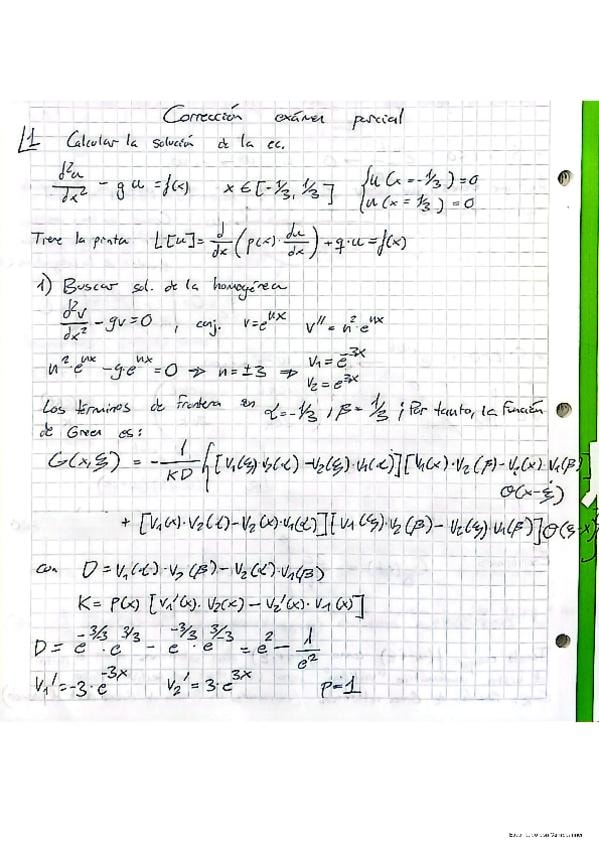 Corrección exámen parcial
1 Calcular la solución de la ec.
d²u/dx² - 9u = f(x)   x ∈ [-1/3, 1/3]   { u(x = -1/3) = 0
{ u(x = 1/3) = 0
Tiene la pinta L[u] = d/dx (p(x) · du/dx) + q·u = f(x)
1) Buscar sol. de la homogénea
d²v/dx² - 9v = 0 , conj. v = e^{nx}   v'' = n²·e^{nx}
n²·e^{nx} - 9·e^{nx} = 0 ⇒ n = ±3 ⇒ v₁ = e^{-3x}
v₂ = e^{3x}
Los términos de frontera en α = -1/3 ; β = 1/3 ; Por tanto, la Función
de Green es:
G(x,ξ) = - 1/KD { [v₁(ξ)·v₂(α) - v₂(ξ)·v₁(α)][v₁(x)·v₂(β) - v₂(x)·v₁(β)]
Θ(x-ξ)
+ [v₁(x)·v₂(α) - v₂(x)·v₁(α)][v₁(ξ)·v₂(β) - v₂(ξ)·v₁(β)] Θ(ξ-x)
con D = v₁(α)·v₂(β) - v₂(α)·v₁(β)
K = p(x) [v₁'(x)·v₂(x) - v₂'(x)·v₁(x)]
D = e^{-3/-3}·e^{3/3} - e^{-3/3}·e^{3/-3} = e² - 1/e²
v₁' = -3·e^{-3x}   v₂' = 3·e^{3x}   p = 1